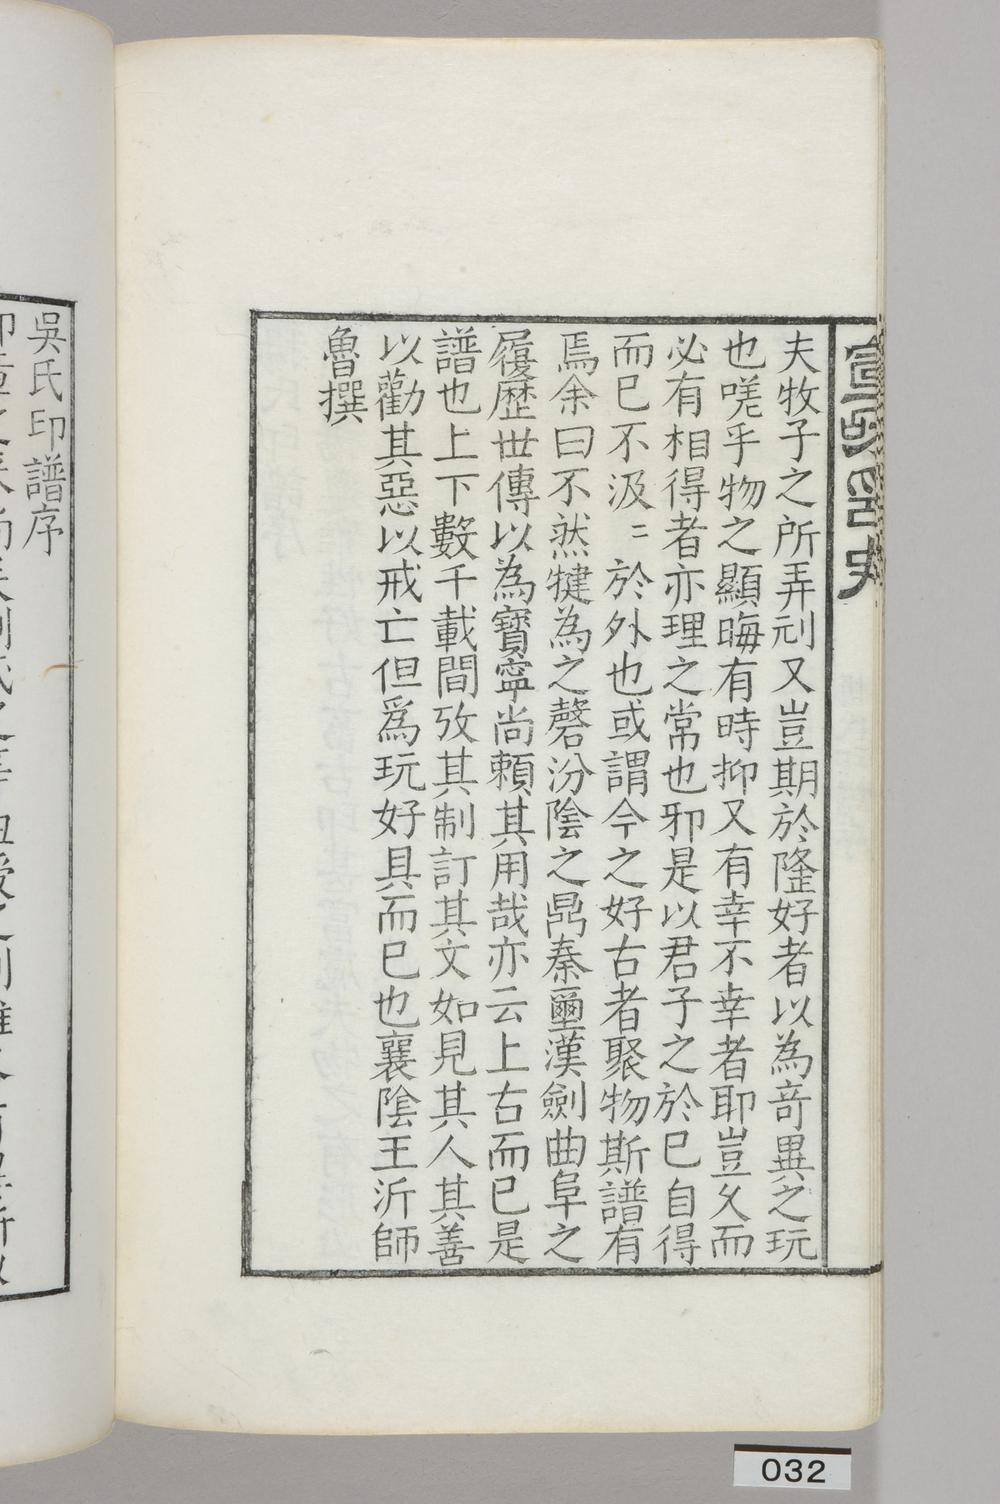 夫牧子之所弄刓又豈期於隆好者以為竒異之玩
也嗟乎物之顯晦有時抑又有幸不幸者耶豈久而
必有相得者亦理之常也邪是以君子之於已自得
而已不汲〻於外也或謂今之好古者聚物斯譜有
焉余曰不然犍為之磬汾陰之鼎秦璽漢劍曲阜之
履歴世傳以為寳寜尚頼其用哉亦云上古而已是
譜也上下數千載間攷其制訂其文如見其人其善
以勸其惡以戒亡但爲玩好具而已也襄陰王沂師
魯撰
吳氏印譜序